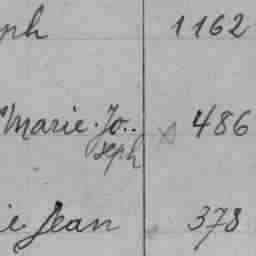 ph 1162
Marie. Jo.. 486
seph
ie Jean 378